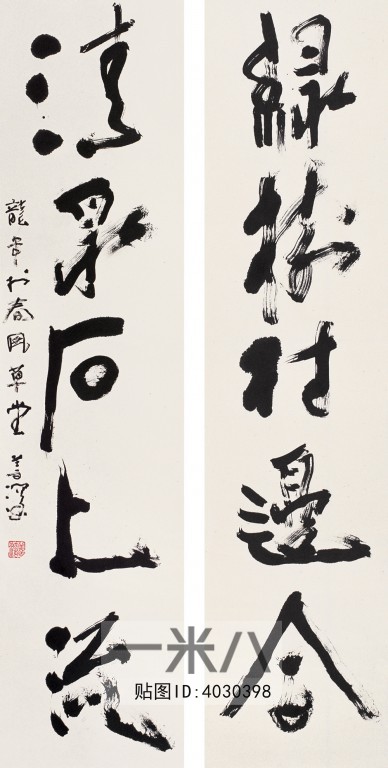 綠樹村邊合
清泉石上流
龍年於春風草堂
一米八
贴图ID:4030398